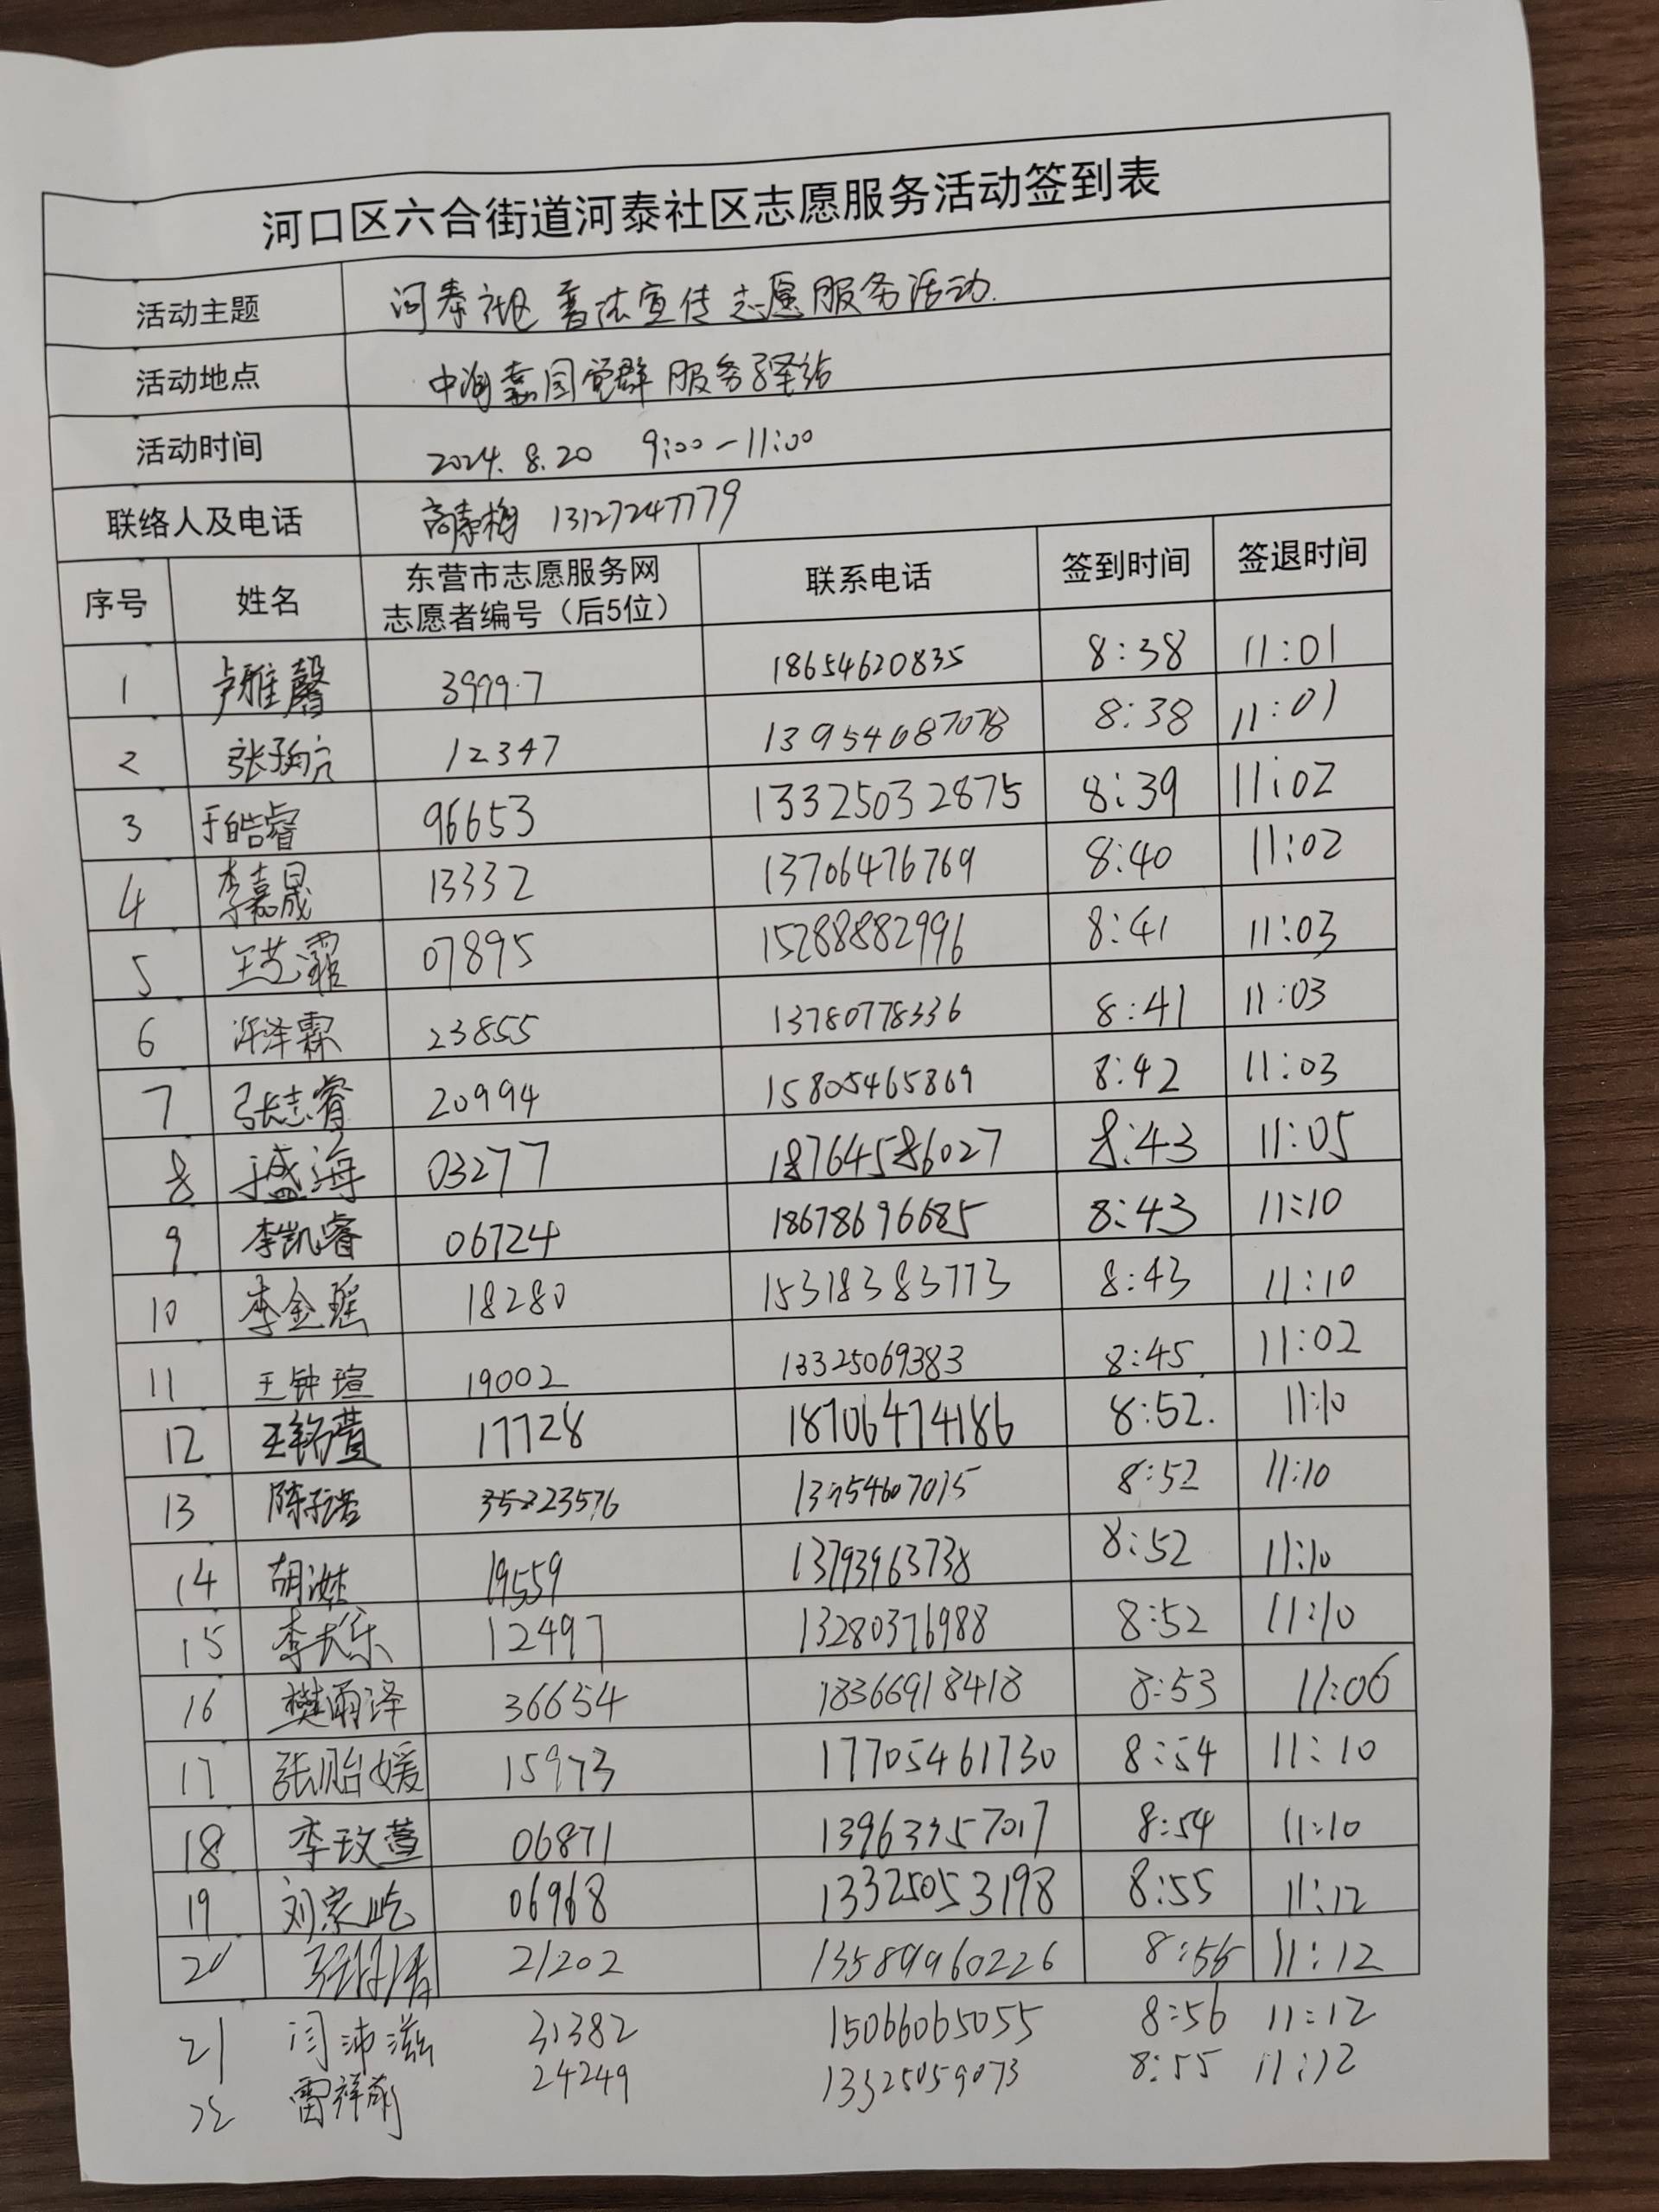 河口区六合街道河泰社区志愿服务活动签到表
活动主题 河泰社区普法宣传志愿服务活动.
活动地点 中海嘉园党群服务驿站
活动时间 2024.8.20 9:00-11:00
联络人及电话 高素梅 13127247779
序号 姓名 东营市志愿服务网志愿者编号（后5位） 联系电话 签到时间 签退时间
1 卢雅馨 39997 18654620835 8:38 11:01
2 12347 13954687078 8:38 11:01
3 于皓睿 96653 13325032875 8:39 11:02
4 李嘉晟 13332 13706476769 8:40 11:02
5 王艺霏 07895 15288882996 8:41 11:03
6 许泽霖 23855 13780778336 8:41 11:03
7 张志睿 20994 15805465869 8:42 11:03
8 于盛海 03277 18764586027 8:43 11:05
9 李凯睿 06724 18678696685 8:43 11:10
10 李金瑶 18280 15318383773 8:43 11:10
11 王钟瑄 19002 13325069383 8:45 11:02
12 王铭萱 17728 18706474186 8:52. 11:10
13 13954607015 8:52 11:10
14 19559 13793963738 8:52 11:10
15 12497 13280376988 8:52 11:10
16 樊雨泽 36654 18366918418 8:53 11:06
17 张贻媛 15973 17705461730 8:54 11:10
18 李玟萱 06871 13963357017 8:54 11:10
19 刘家屹 06968 13325053198 8:55 11:12
20 21202 13589960226 8:55 11:12
21 闫沛滋 31382 15066065055 8:56 11:12
22 24249 13325059073 8:55 11:12